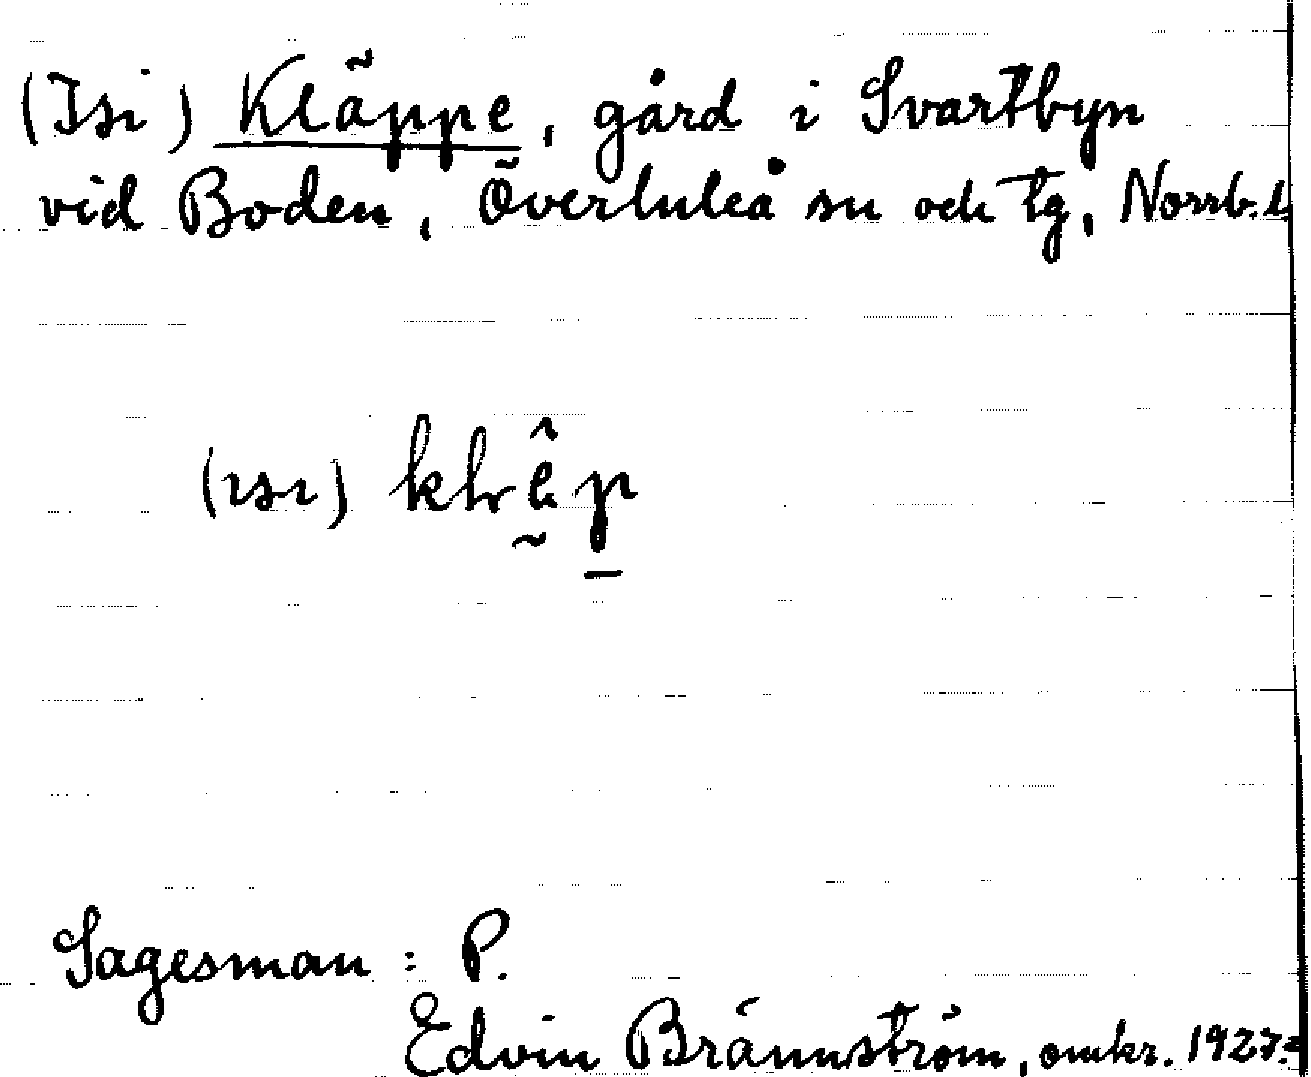 (Isi) Kläppe, gård i Svartbyn
vid Boden, Överluleå sn och tg, Norrb. l.
(ısı)
Sagesman: P.
Edvin Brännström, omkr. 1927.